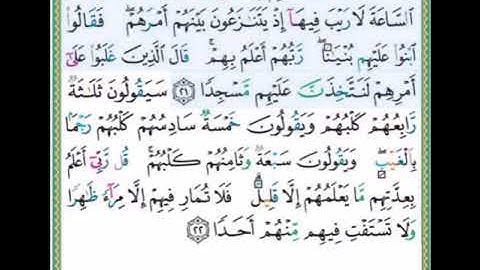 ٱلسَّاعَةَ لَا رَيْبَ فِيهَآ إِذْ يَتَنَٰزَعُونَ بَيْنَهُمْ أَمْرَهُمْ ۖ فَقَالُوا۟
ٱبْنُوا۟ عَلَيْهِم بُنْيَٰنًا ۖ رَّبُّهُمْ أَعْلَمُ بِهِمْ ۚ قَالَ ٱلَّذِينَ غَلَبُوا۟ عَلَىٰٓ
أَمْرِهِمْ لَنَتَّخِذَنَّ عَلَيْهِم مَّسْجِدًا ٢١ سَيَقُولُونَ ثَلَٰثَةٌ
رَّابِعُهُمْ كَلْبُهُمْ وَيَقُولُونَ خَمْسَةٌ سَادِسُهُمْ كَلْبُهُمْ رَجْمًۢا
بِٱلْغَيْبِ ۖ وَيَقُولُونَ سَبْعَةٌ وَثَامِنُهُمْ كَلْبُهُمْ ۚ قُل رَّبِّىٓ أَعْلَمُ
بِعِدَّتِهِم مَّا يَعْلَمُهُمْ إِلَّا قَلِيلٌ ۗ فَلَا تُمَارِ فِيهِمْ إِلَّا مِرَآءً ظَٰهِرًا
وَلَا تَسْتَفْتِ فِيهِم مِّنْهُمْ أَحَدًا ٢٢